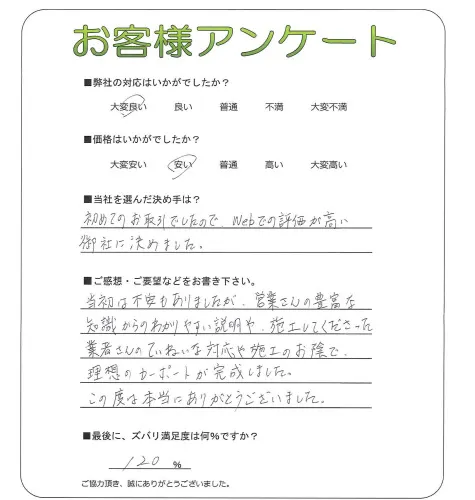 お客様アンケート
■弊社の対応はいかがでしたか？
大変良い 良い 普通 不満 大変不満
■価格はいかがでしたか？
大変安い 安い 普通 高い 大変高い
■当社を選んだ決め手は？
初めてのお取引でしたので、Webでの評価が高い
御社に決めました。
■ご感想・ご要望などをお書き下さい。
当初は不安もありましたが、営業さんの豊富な
知識からのわかりやすい説明や、施工してくださった
業者さんのていねいな対応や施工のお陰で、
理想のカーポートが完成しました。
この度は本当にありがとうございました。
■最後に、ズバリ満足度は何%ですか？
120 %
ご協力頂き、誠にありがとうございました。